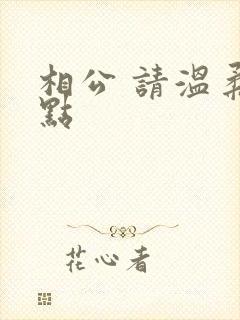 相公 請溫柔
點
花心者